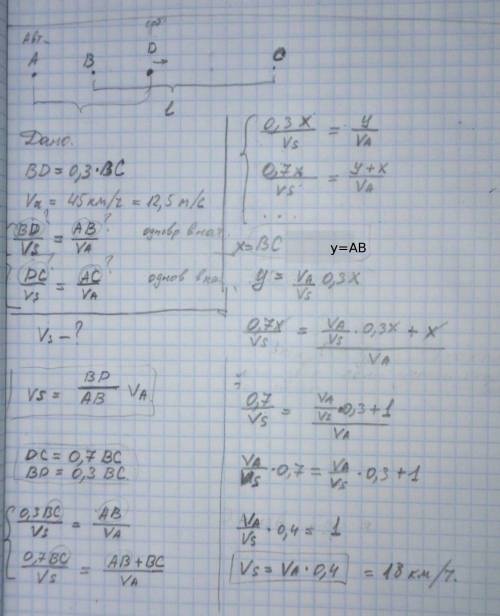 Авт.
A B D C
l
Дано.
BD = 0,3·BC
Vа = 45 км/ч = 12,5 м/с
BD/Vs = AB/VA
DC/Vs = AC/VA
Vs – ?
Vs = BD/AB VA
DC = 0,7 BC
BD = 0,3 BC
0,3BC/Vs = AB/VA
0,7BC/Vs = AB+BC/VA
0,3X/Vs = y/VA
0,7x/Vs = y+x/VA
...
x=BC y=AB
y = VA/Vs 0,3x
0,7x/Vs = VA/Vs · 0,3x + x/VA
0,7/Vs = VA/Vs · 0,3+1/VA
VA/Vs · 0,7 = VA/Vs · 0,3+1
VA/Vs · 0,4 = 1
Vs = VA · 0,4 = 18 км/ч.